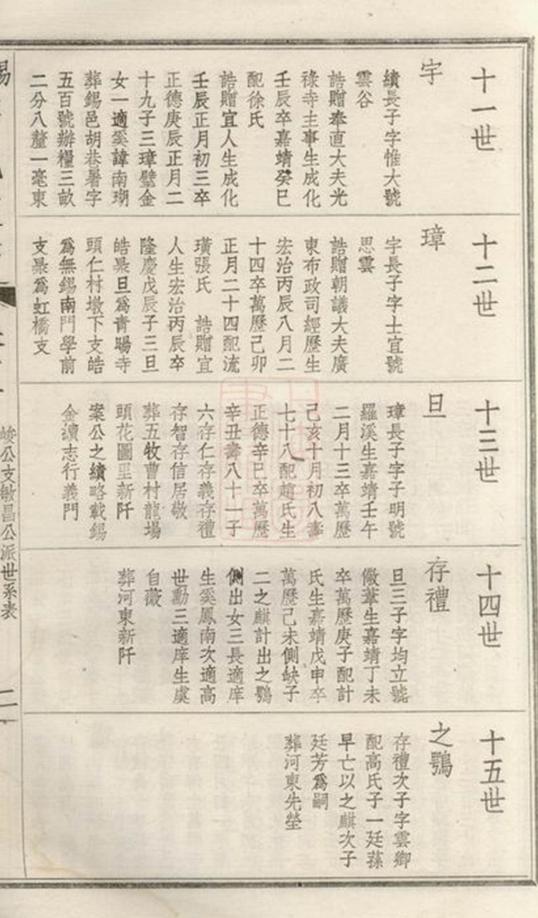 十一世
宇
績長子字惟大號
雲谷
誥贈奉直大夫光
祿寺主事生成化
壬辰卒嘉靖癸巳
配徐氏
誥贈宜人生成化
壬辰正月初三卒
正德庚辰正月二
十九子三璋璧金
女一適溪諱南瑚
葬錫邑胡巷暑字
五百號辦糧三畝
二分八釐一毫東
十二世
璋
宇長子字士宜號
思雲
誥贈朝議大夫廣
東布政司經歷生
宏治丙辰八月二
十四卒萬歷己卯
正月二十四配流
璜張氏 誥贈宜
人生宏治丙辰卒
隆慶戊辰子三旦
皓杲旦爲青暘寺
頭仁村墩下支皓
爲無錫南門學前
支杲爲虹橋支
十三世
旦
璋長子字子明號
羅溪生嘉靖壬午
二月十三卒萬歷
己亥十月初八壽
七十八配趙氏生
正德辛巳卒萬歷
辛丑壽八十一子
六存仁存義存禮
存智存信居敬
葬五牧曹村龍塲
頭花園里新阡
案公之績略載錫
金讀志行義門
十四世
存禮
旦三子字均立號
儆葦生嘉靖丁未
卒萬歷庚子配計
氏生嘉靖戊申卒
萬歷己未側缺子
二之麒計出之鶚
側出女三長適庠
生溪鳳南次適高
世勳三適庠生虞
自薇
葬河東新阡
十五世
之鶚
存禮次子字雲卿
配高氏子一廷蓀
早亡以之麒次子
廷芳爲嗣
葬河東先塋
峻公支敏昌公派世系表